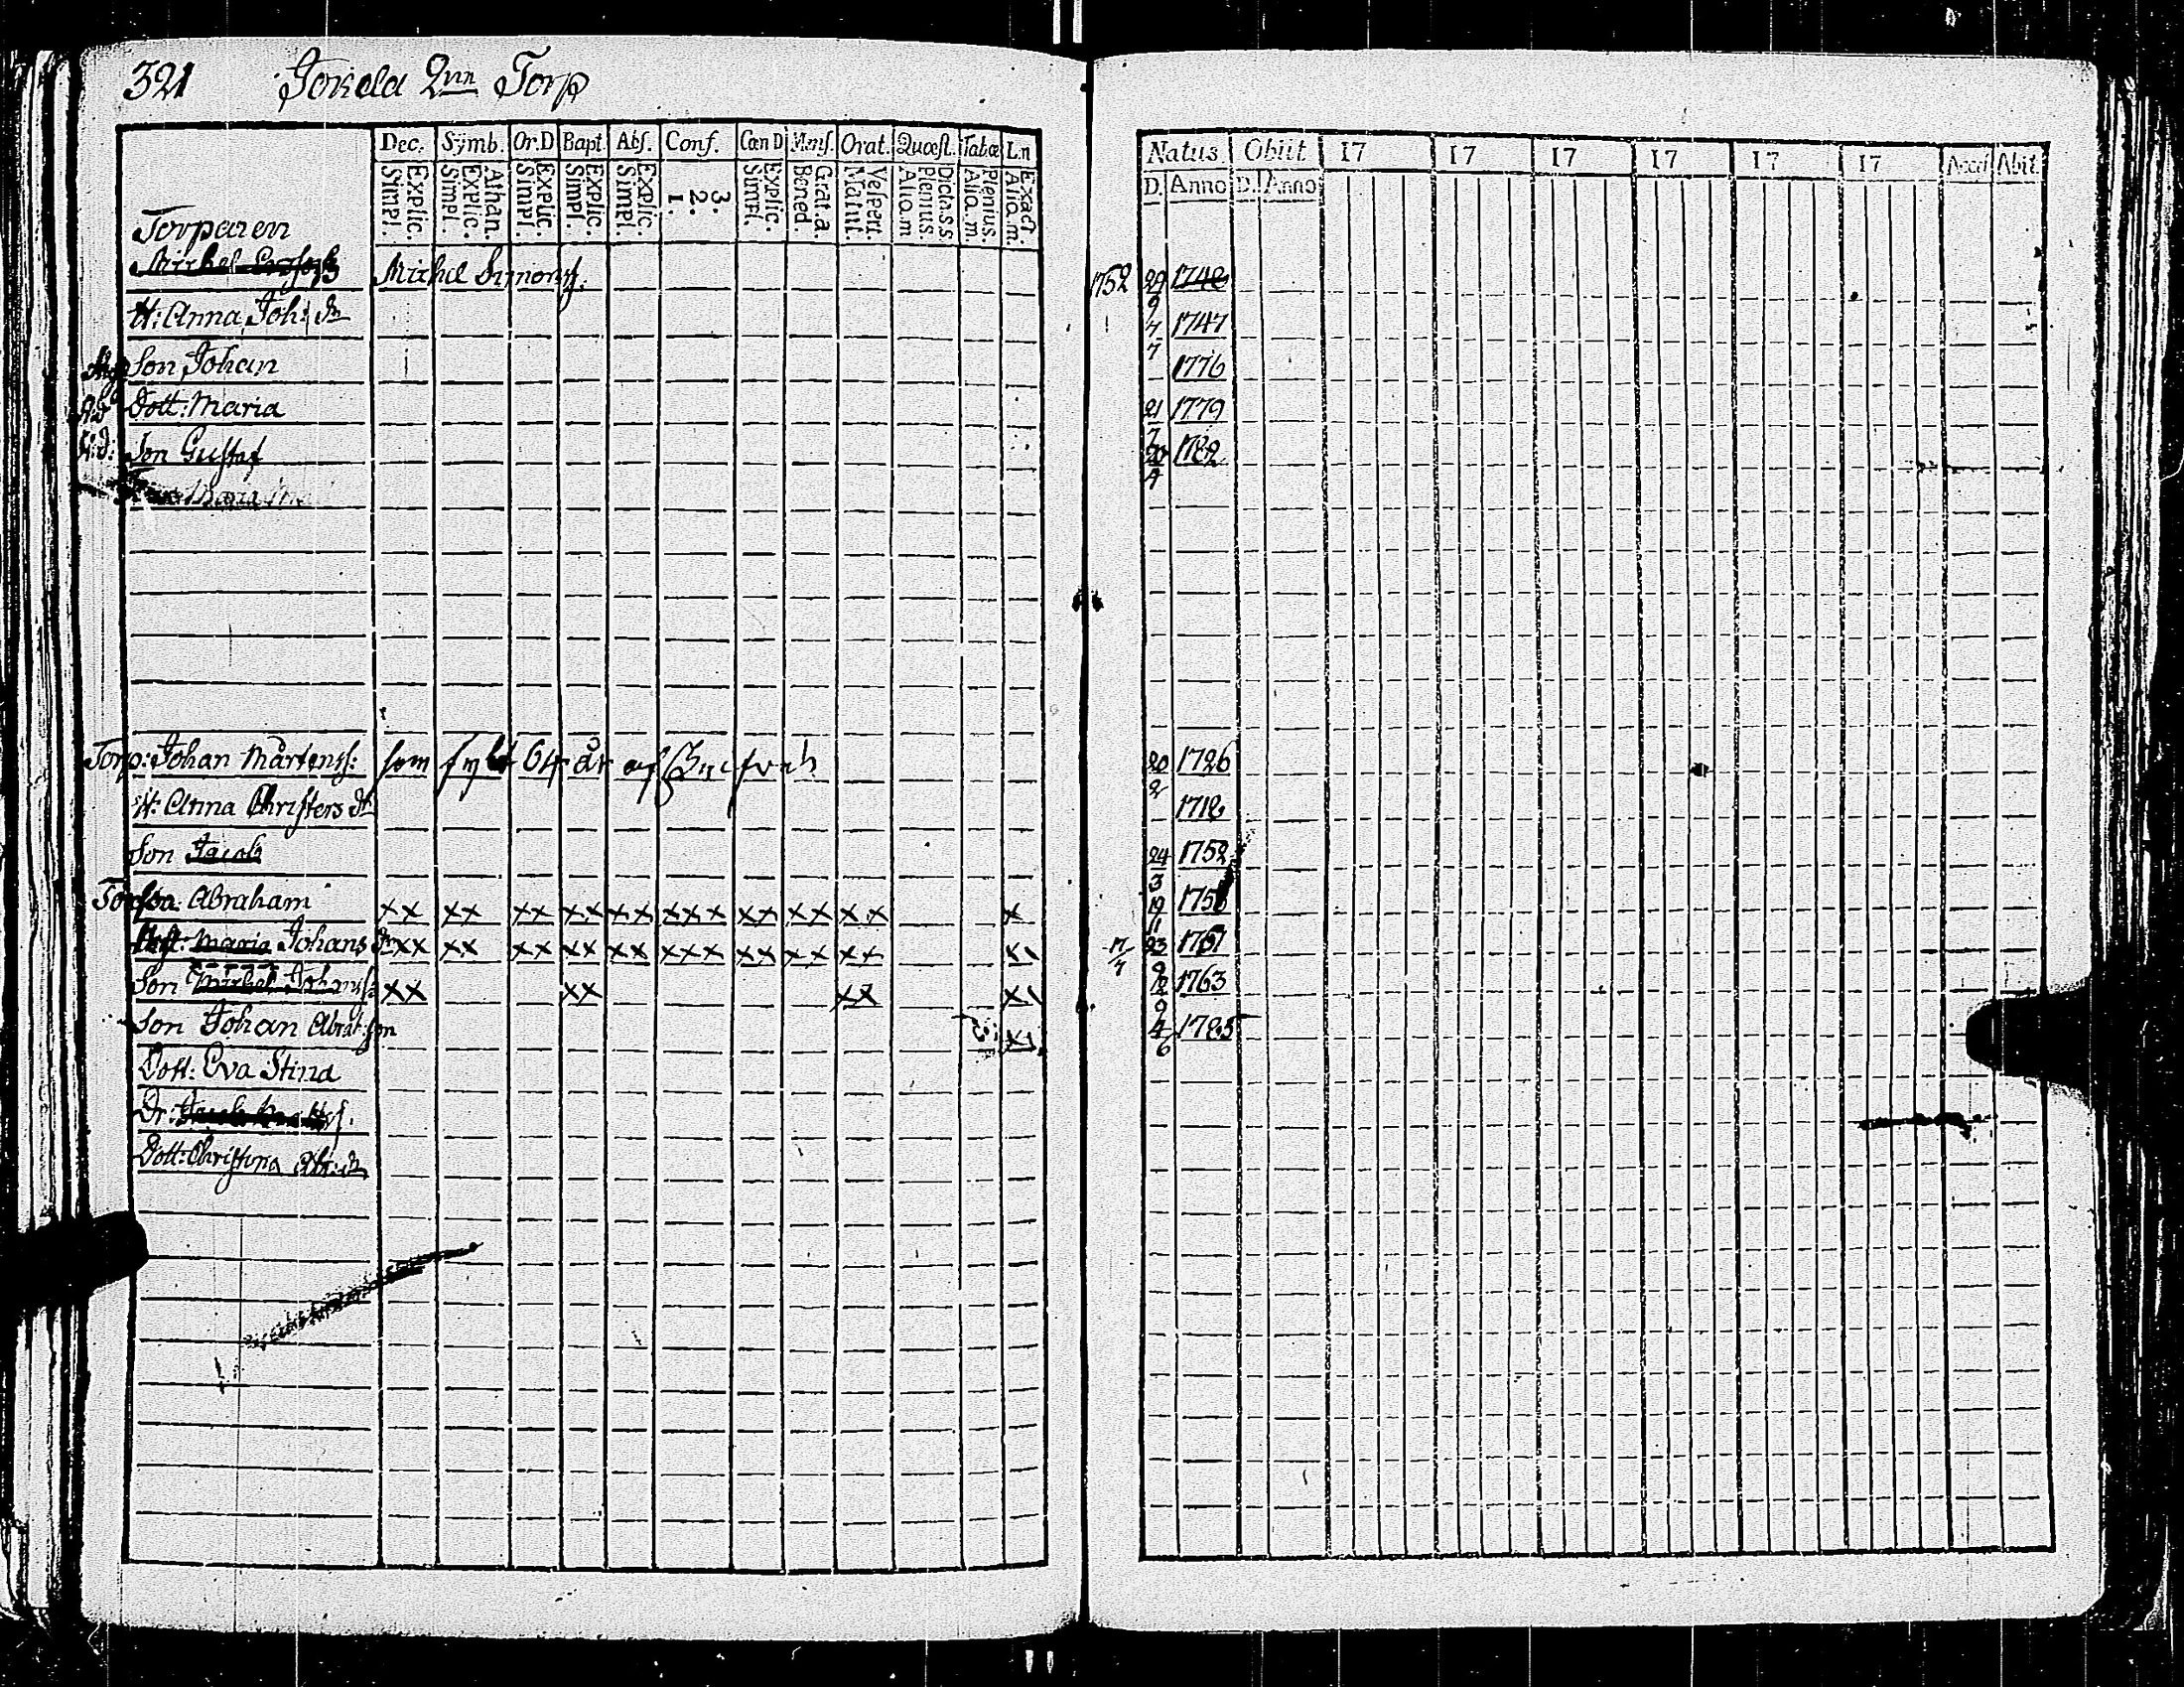 321 Jokela Qvn Torp
Dec. Symb. Or.D Bapt. Abs. Conf. Cœn D Mens. Orat. Quæst. Tabæ Ln
Explic. Simpl. Athan. Explic. Simpl. Explic. Simpl. Explic. Simpl. Explic. Simpl. 3. 2. 1. Explic. Simpl. Grat. a. Bened. Vespert. Matut. Dicta S.S. Plenius. Aliq. m. Plenius. Aliq. m. Exact. Aliq. m.
Natus Obiit 17 17 17 17 17 17 Acces Abit
D. Anno D. Anno
Torparen
Michel Michel Simonss. 1752 29/9 1748
H: Anna Joh: dr 7/7 1747
Son Johan 1776
Dott: Maria 21/7 1779
Son Gustaf 20/4 1782
Maria
Torp: Johan Mårtenss: som fylt 64 år 20/2 1726
H: Anna Christers dr 1718
Son Jacob 24/3 1752
Torp Son Abraham xx xx xx xx xx xxx xx xx xx x 19/11 1758
Maria Johans dr xx xx xx xx xx xxx xx xx xx xx 17/7 23 1761
Son Michel Johanss: xx xx xx xx 12/9 1763
Son Johan Abrah:son xx 4/6 1785
Dott: Eva Stina
Dr:
Dott: Christina Abr: dr